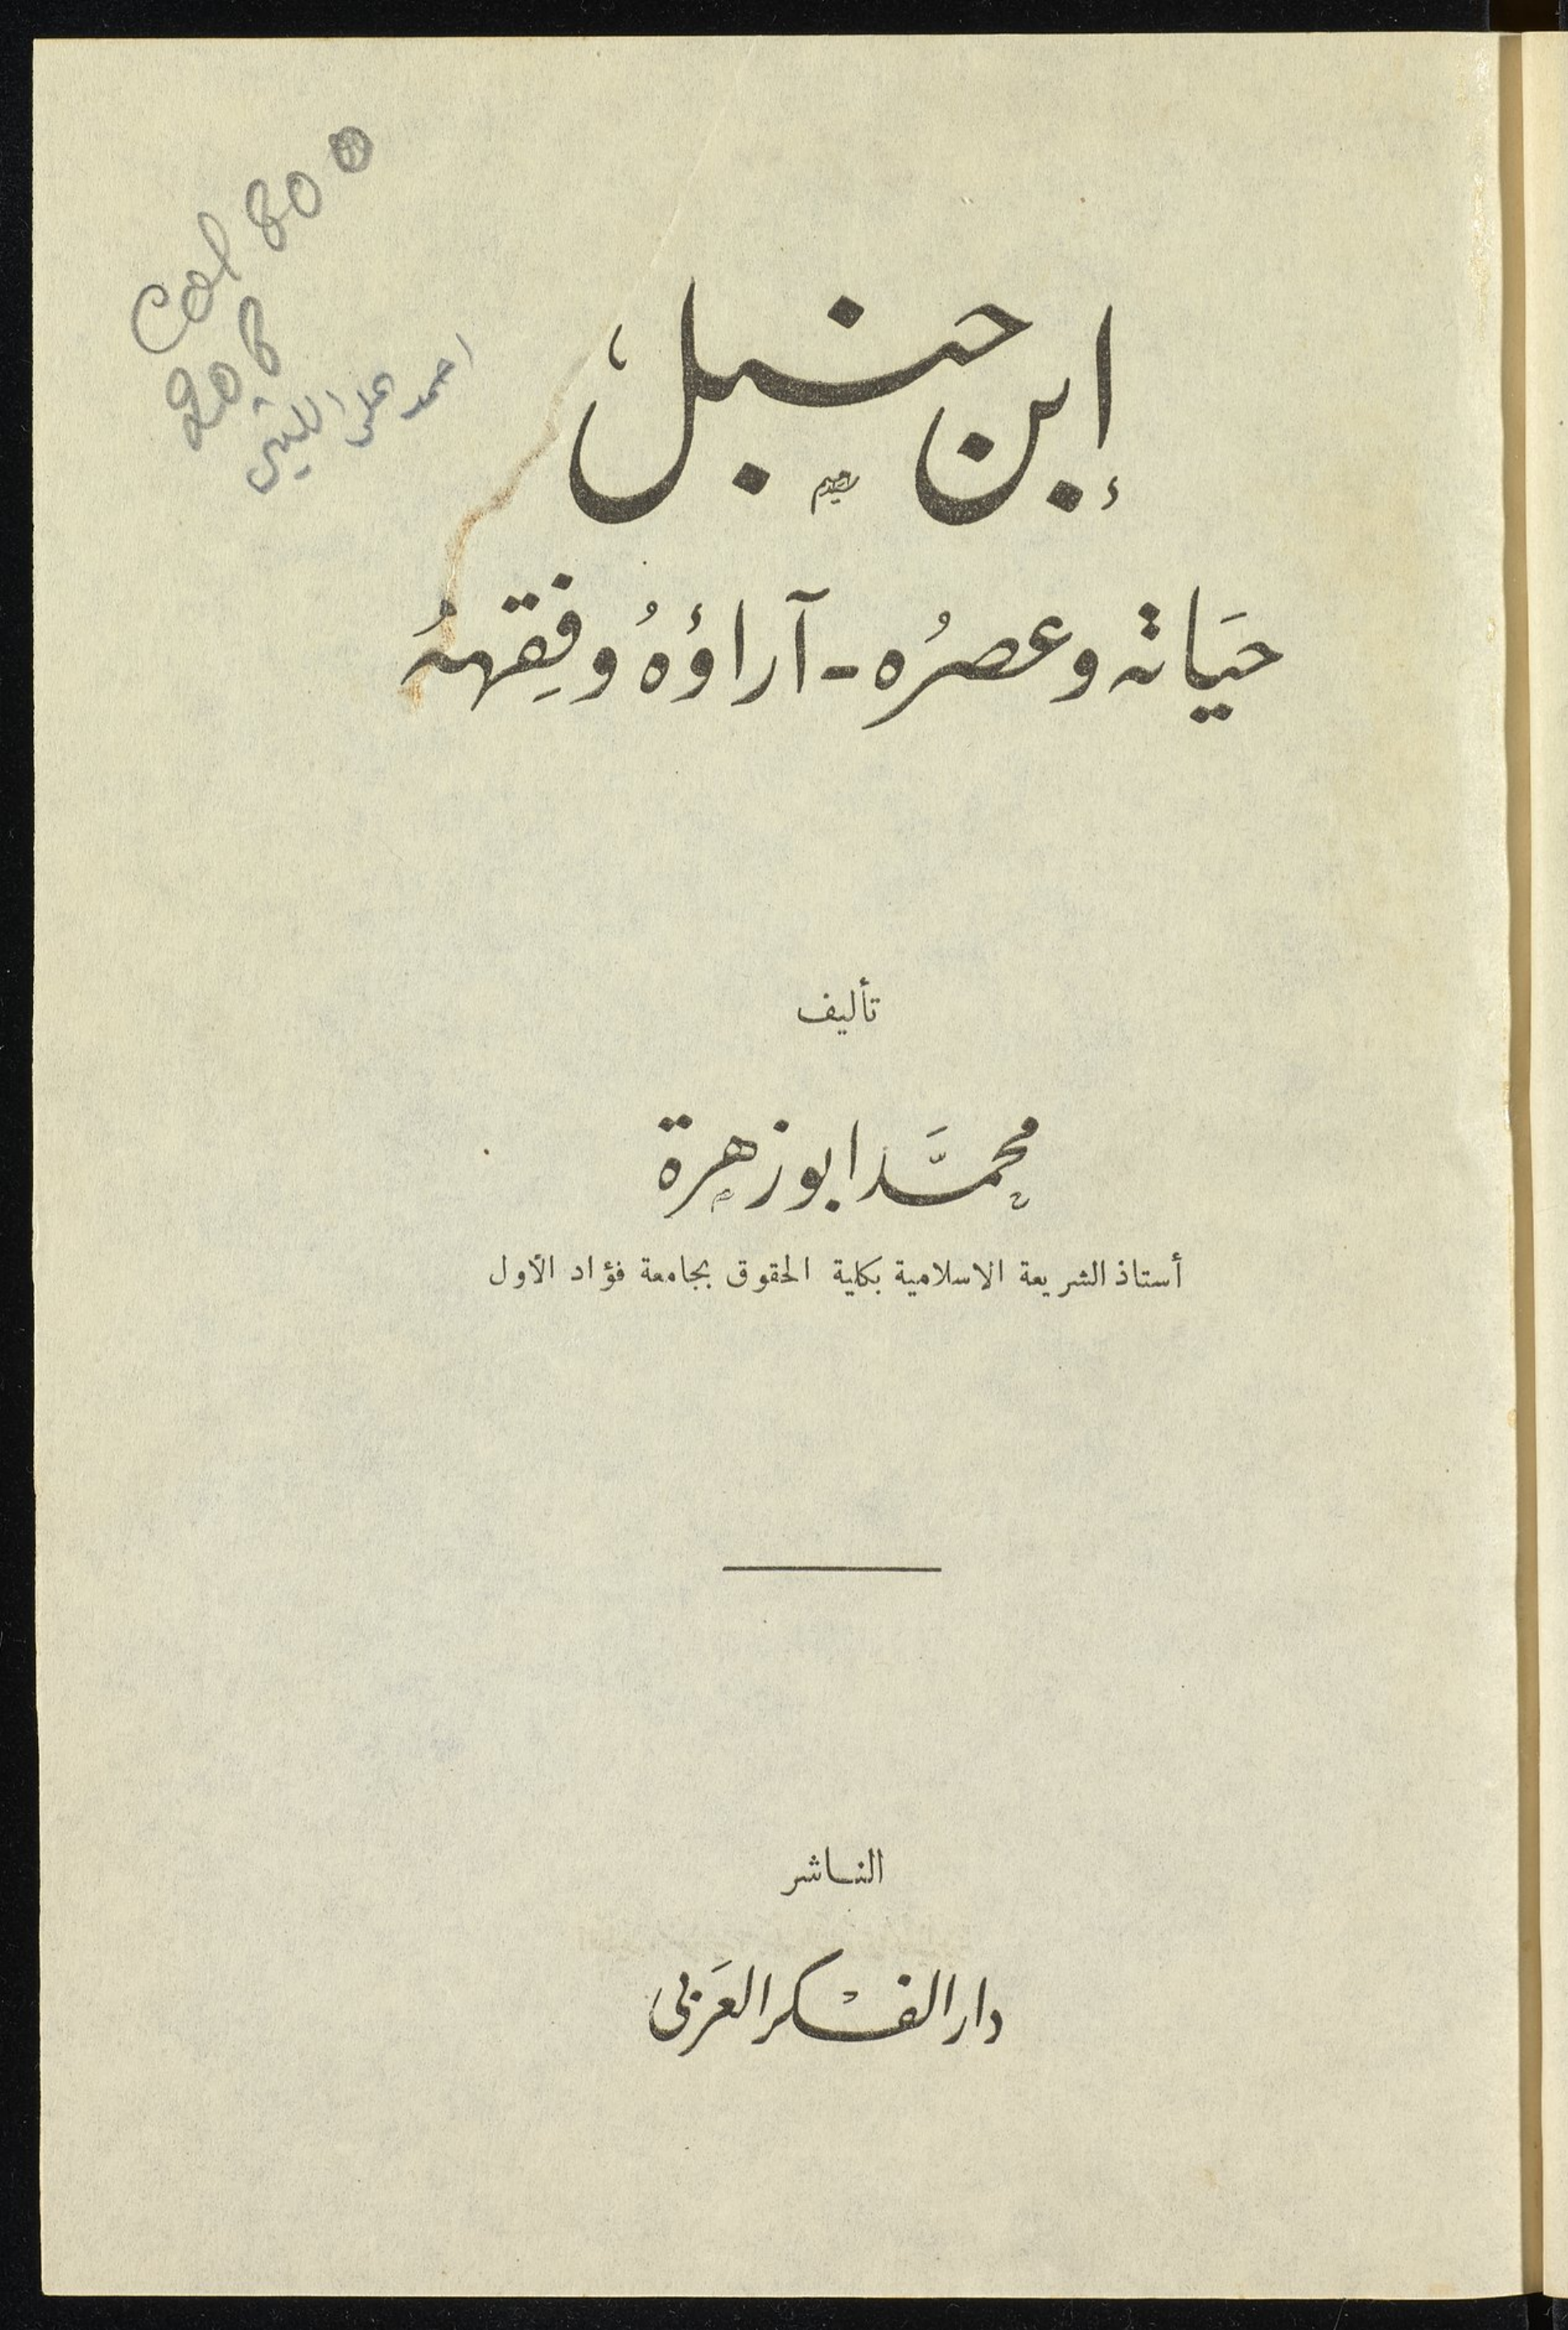 Col 80
206
احمد على الليثى
إبن حنبل
حَيَاته وعصرُه - آراؤهُ وفِقههُ
تأليف
محمَّد ابو زهرة
أستاذ الشريعة الاسلامية بكلية الحقوق بجامعة فؤاد الأول
الناشر
دار الفكر العَربى